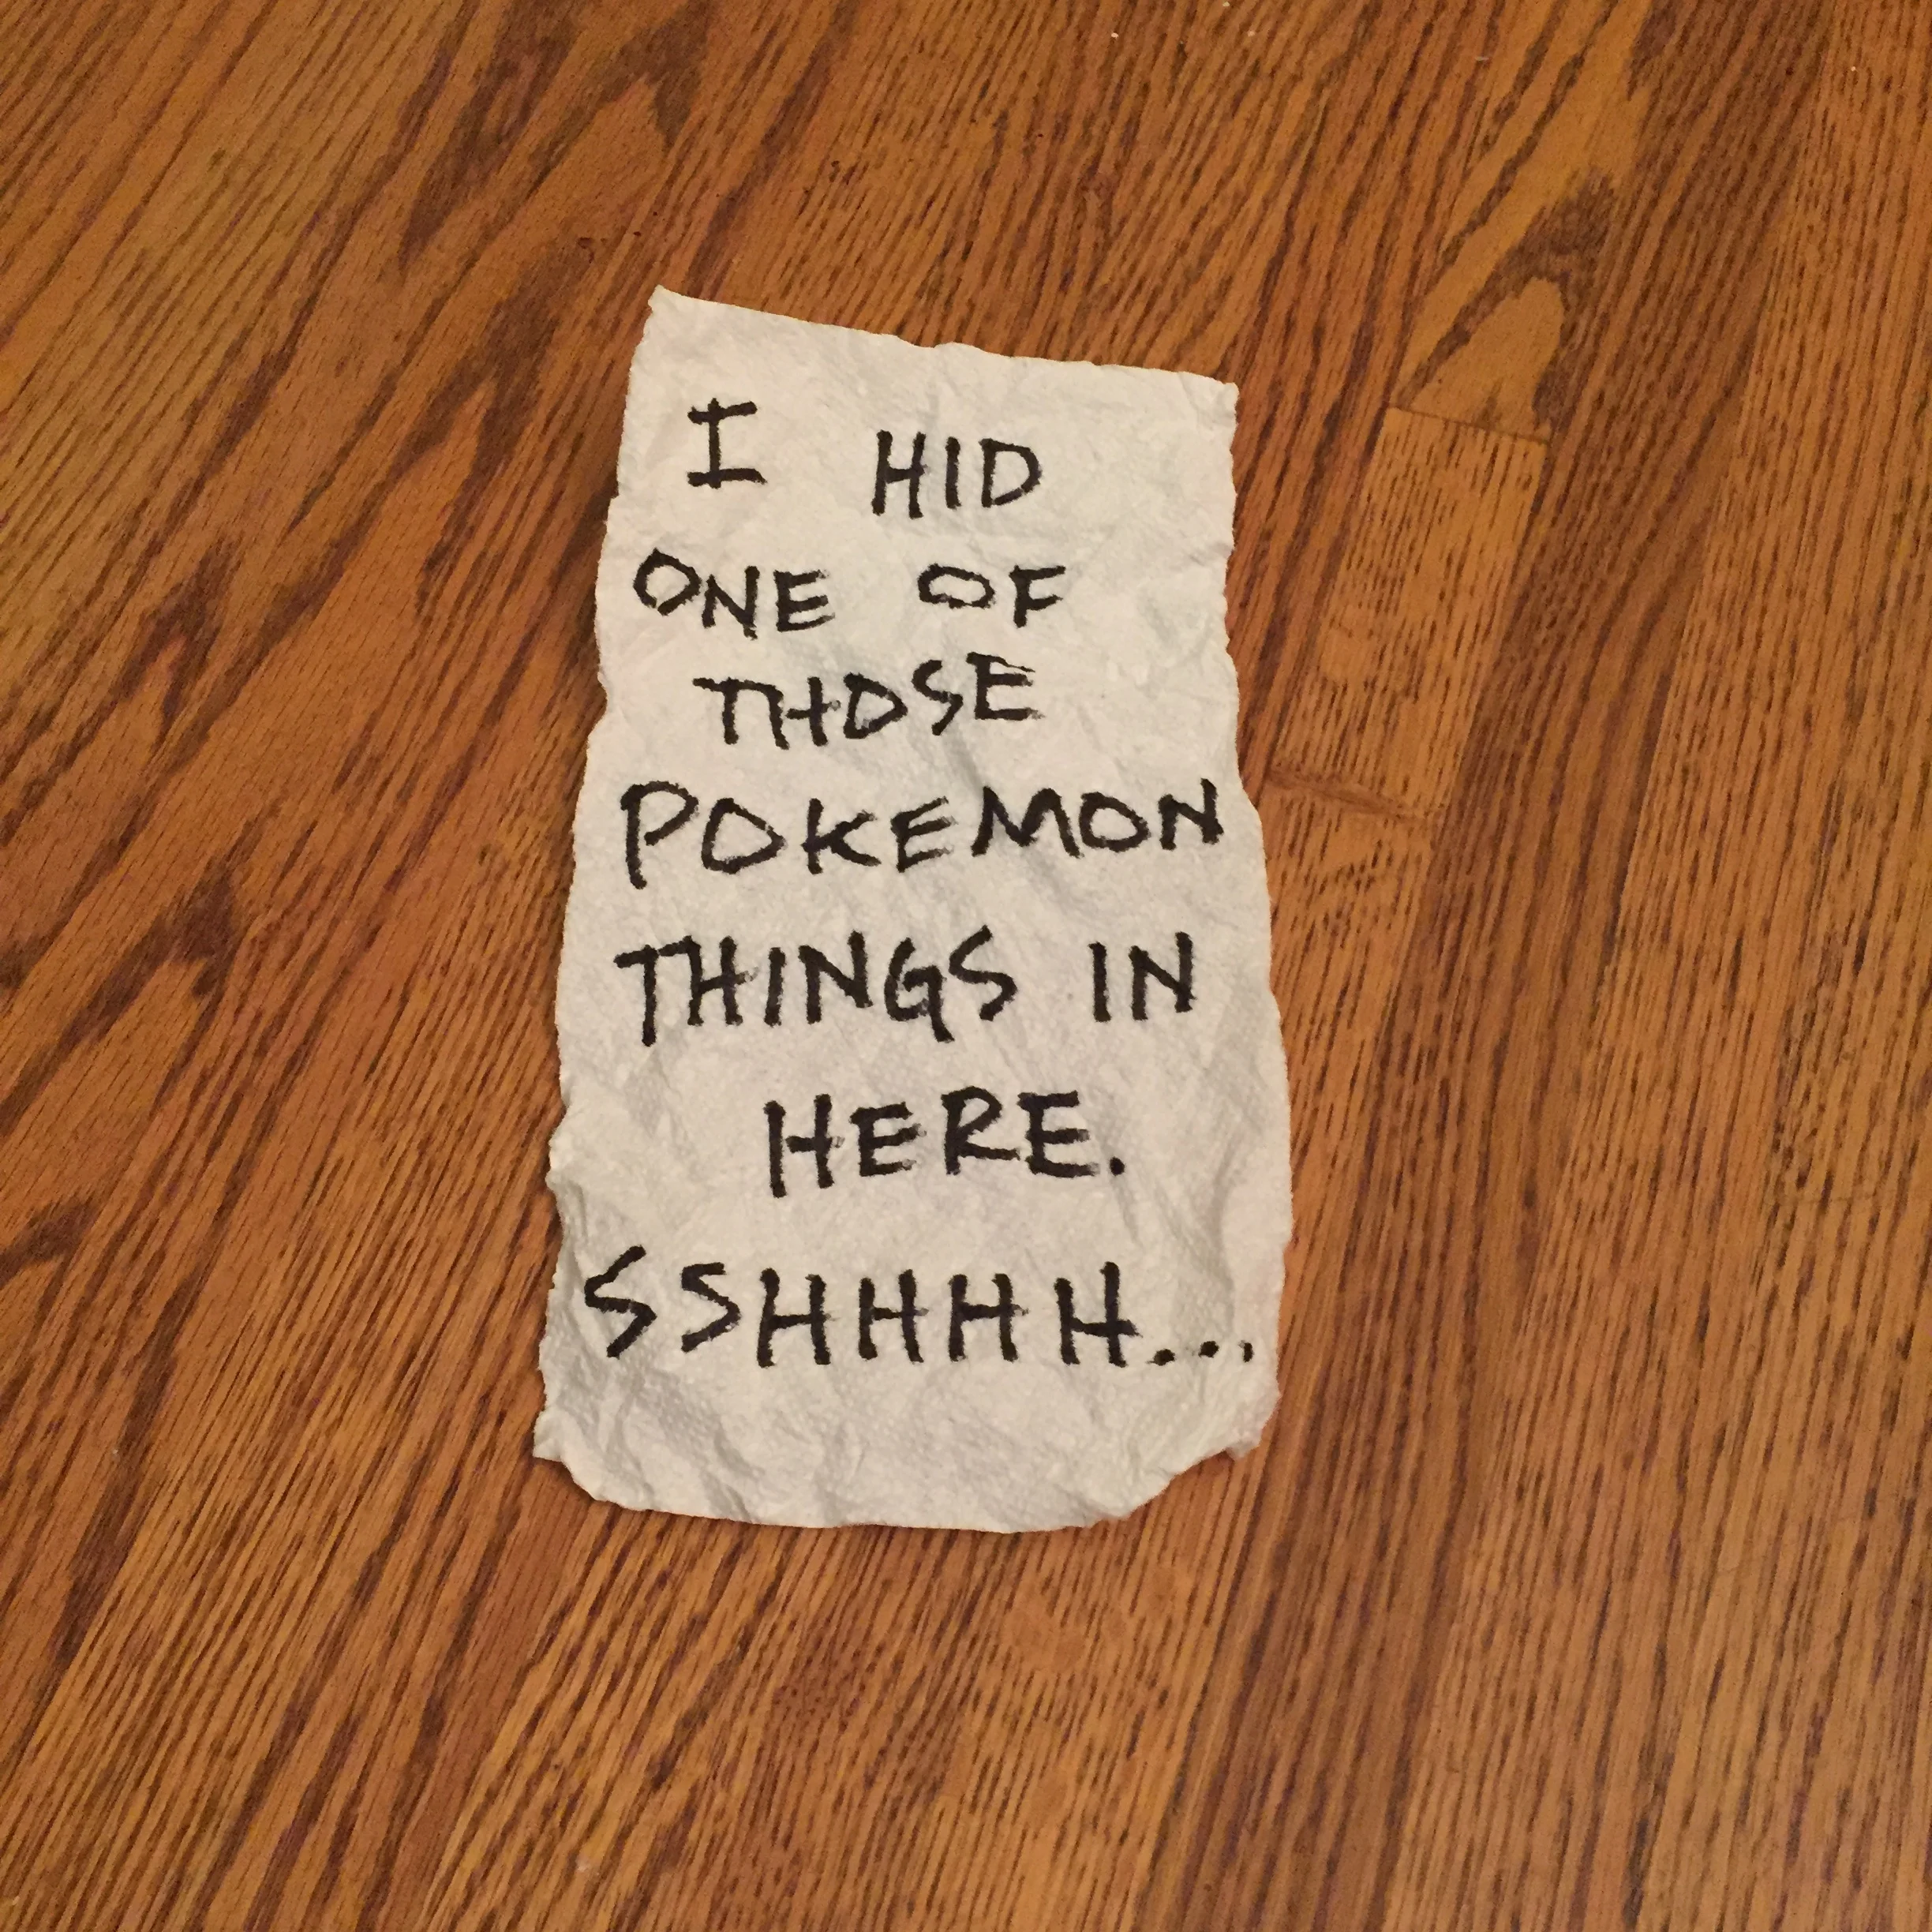 I HID
ONE OF
THOSE
POKEMON
THINGS IN
HERE.
SSHHHH...